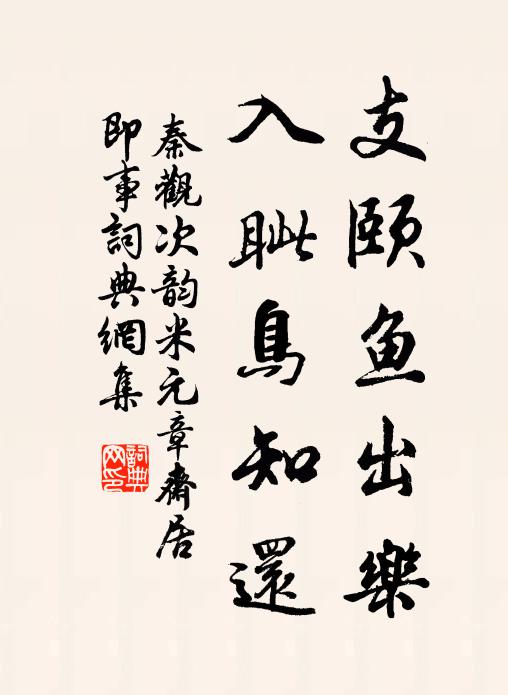 支頤鱼出樂
入眦鳥知還
秦觀次韵米元章齋居
即事詞典網集
詞典
网印